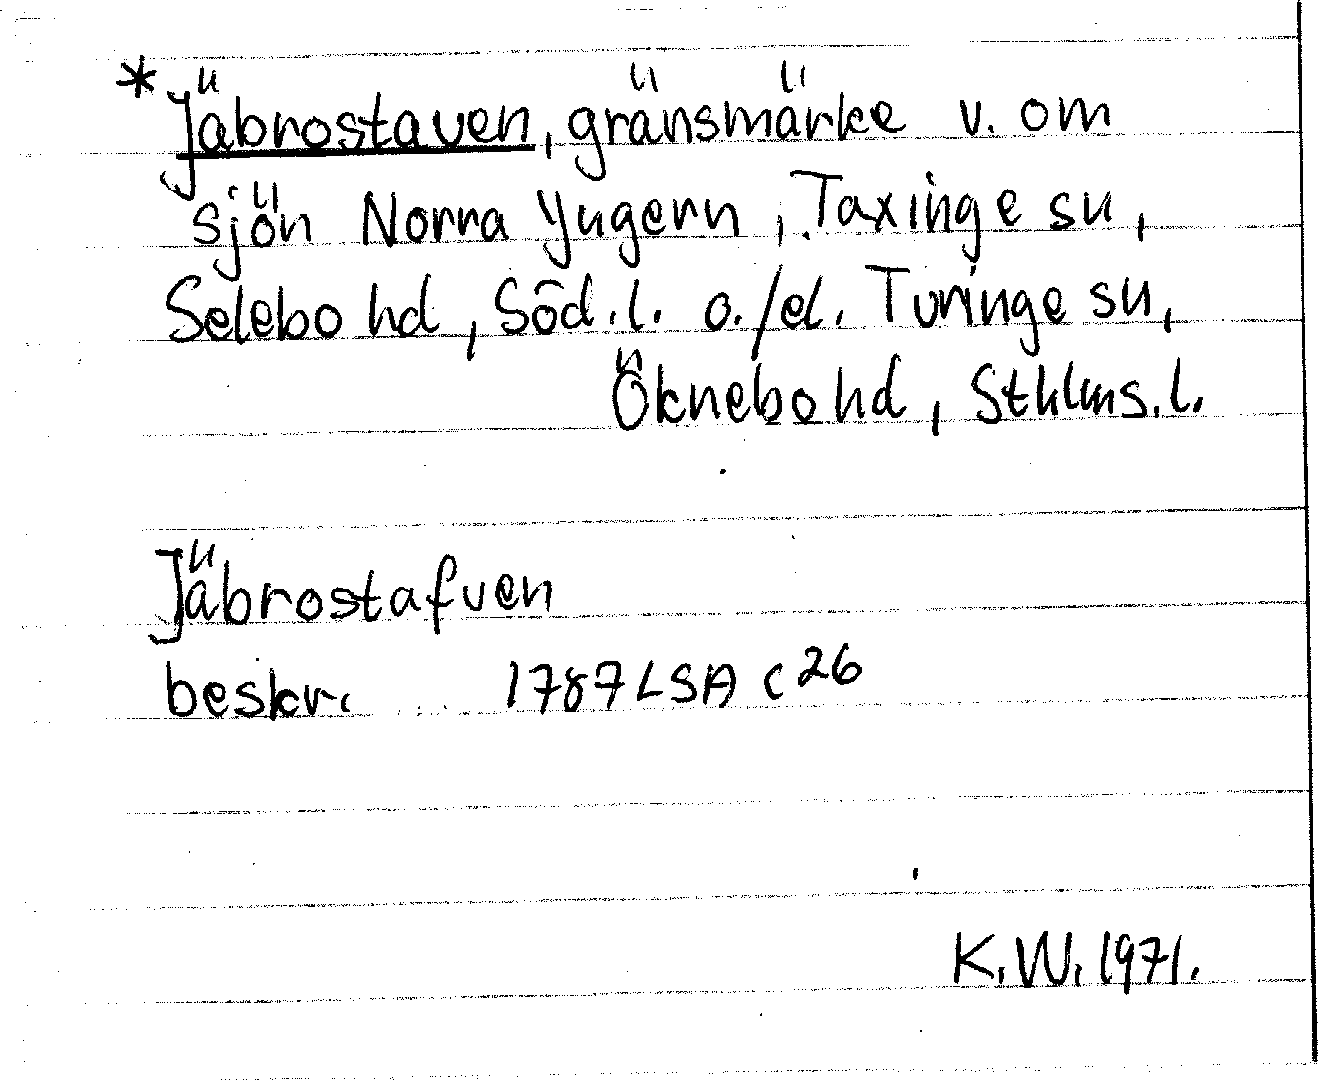 *Jäbrostaven, gränsmärke v. om
sjön Norra Yngern, Taxinge sn,
Selebo hd, Söd.l. o./el. Turinge sn,
Öknebo hd, Sthlms.l.
Jäbrostafven
beskr. 1787 LSA C 26
K.W. 1971.